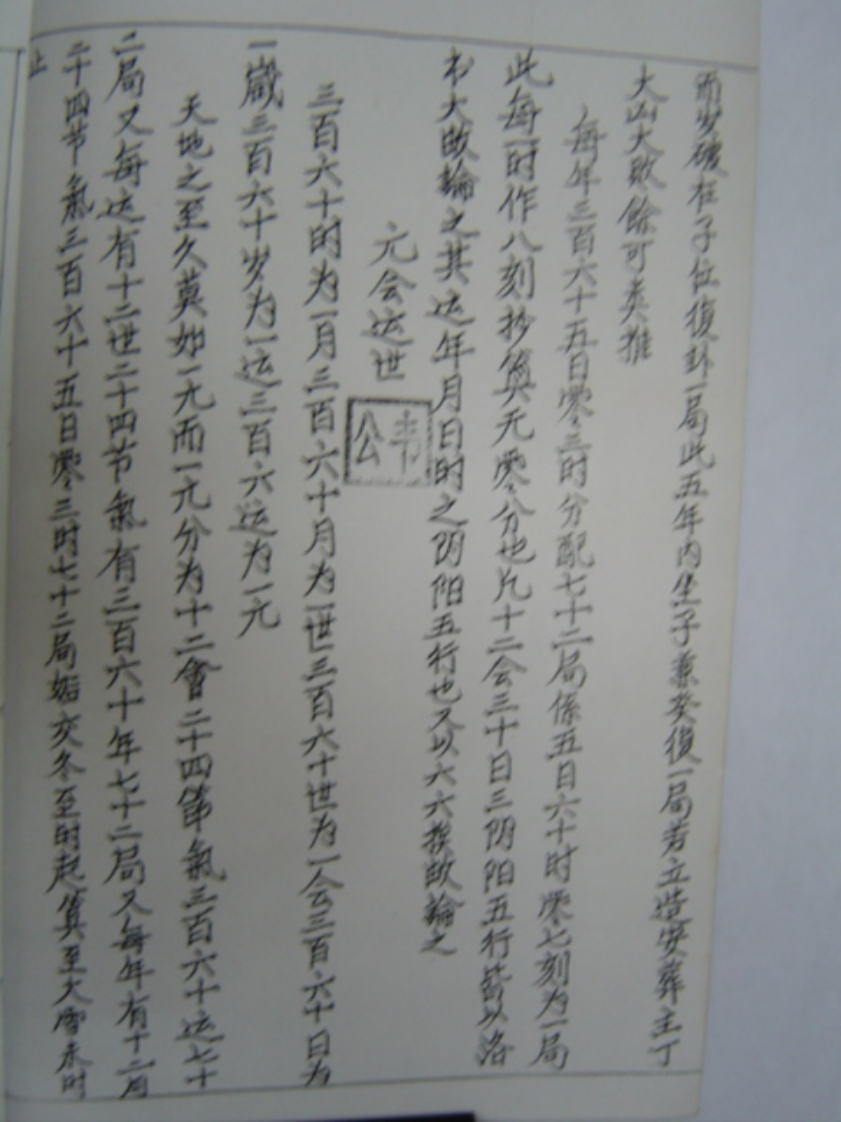 而岁破在子位復卦一局此五年内坐子兼癸復一局芳立造安葬主丁
大凶大敗餘可类推
每年三百六十五日零三时分配七十二局係五日六十时零七刻为一局
此每一时作八刻抄算无零分也凡十二会三十日三阴阳五行皆以洛
书大敗輪之其运年月日时之阴阳五行也又以六六挨敗輪之
元会运世
韦公
三百六十时为一月三百六十月为一世三百六十世为一会三百六十日为
一嵗三百六十岁为一运三百六运为一元
天地之至久莫如一元而一元分为十二會二十四節氣三百六十运七十
二局又每运有十二世二十四节氣有三百六十年七十二局又每年有十二月
二十四节氣三百六十五日零三时七十二局始交冬至时起算至大雪末时
止